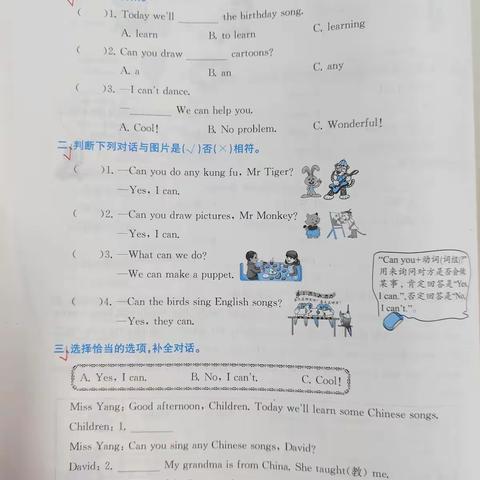 (    )1. Today we'll ______ the birthday song.
A. learn    B. to learn    C. learning
(    )2. Can you draw ______ cartoons?
A. a    B. an    C. any
(    )3. —I can't dance.
—________ We can help you.
A. Cool!    B. No problem.    C. Wonderful!
二、判断下列对话与图片是(√)否(×)相符。
(    )1. —Can you do any kung fu, Mr Tiger?
—Yes, I can.
(    )2. —Can you draw pictures, Mr Monkey?
—Yes, I can.
(    )3. —What can we do?
—We can make a puppet.
(    )4. —Can the birds sing English songs?
—Yes, they can.
"Can you+动词(词组)?"
用来询问对方是否会做
某事，肯定回答是"Yes,
I can.",否定回答是"No,
I can't."。
三、选择恰当的选项,补全对话。
A. Yes, I can.    B. No, I can't.    C. Cool!
Miss Yang: Good afternoon, Children. Today we'll learn some Chinese songs.
Children: 1. ______
Miss Yang: Can you sing any Chinese songs, David?
David: 2. ______ My grandma is from China. She taught(教) me.